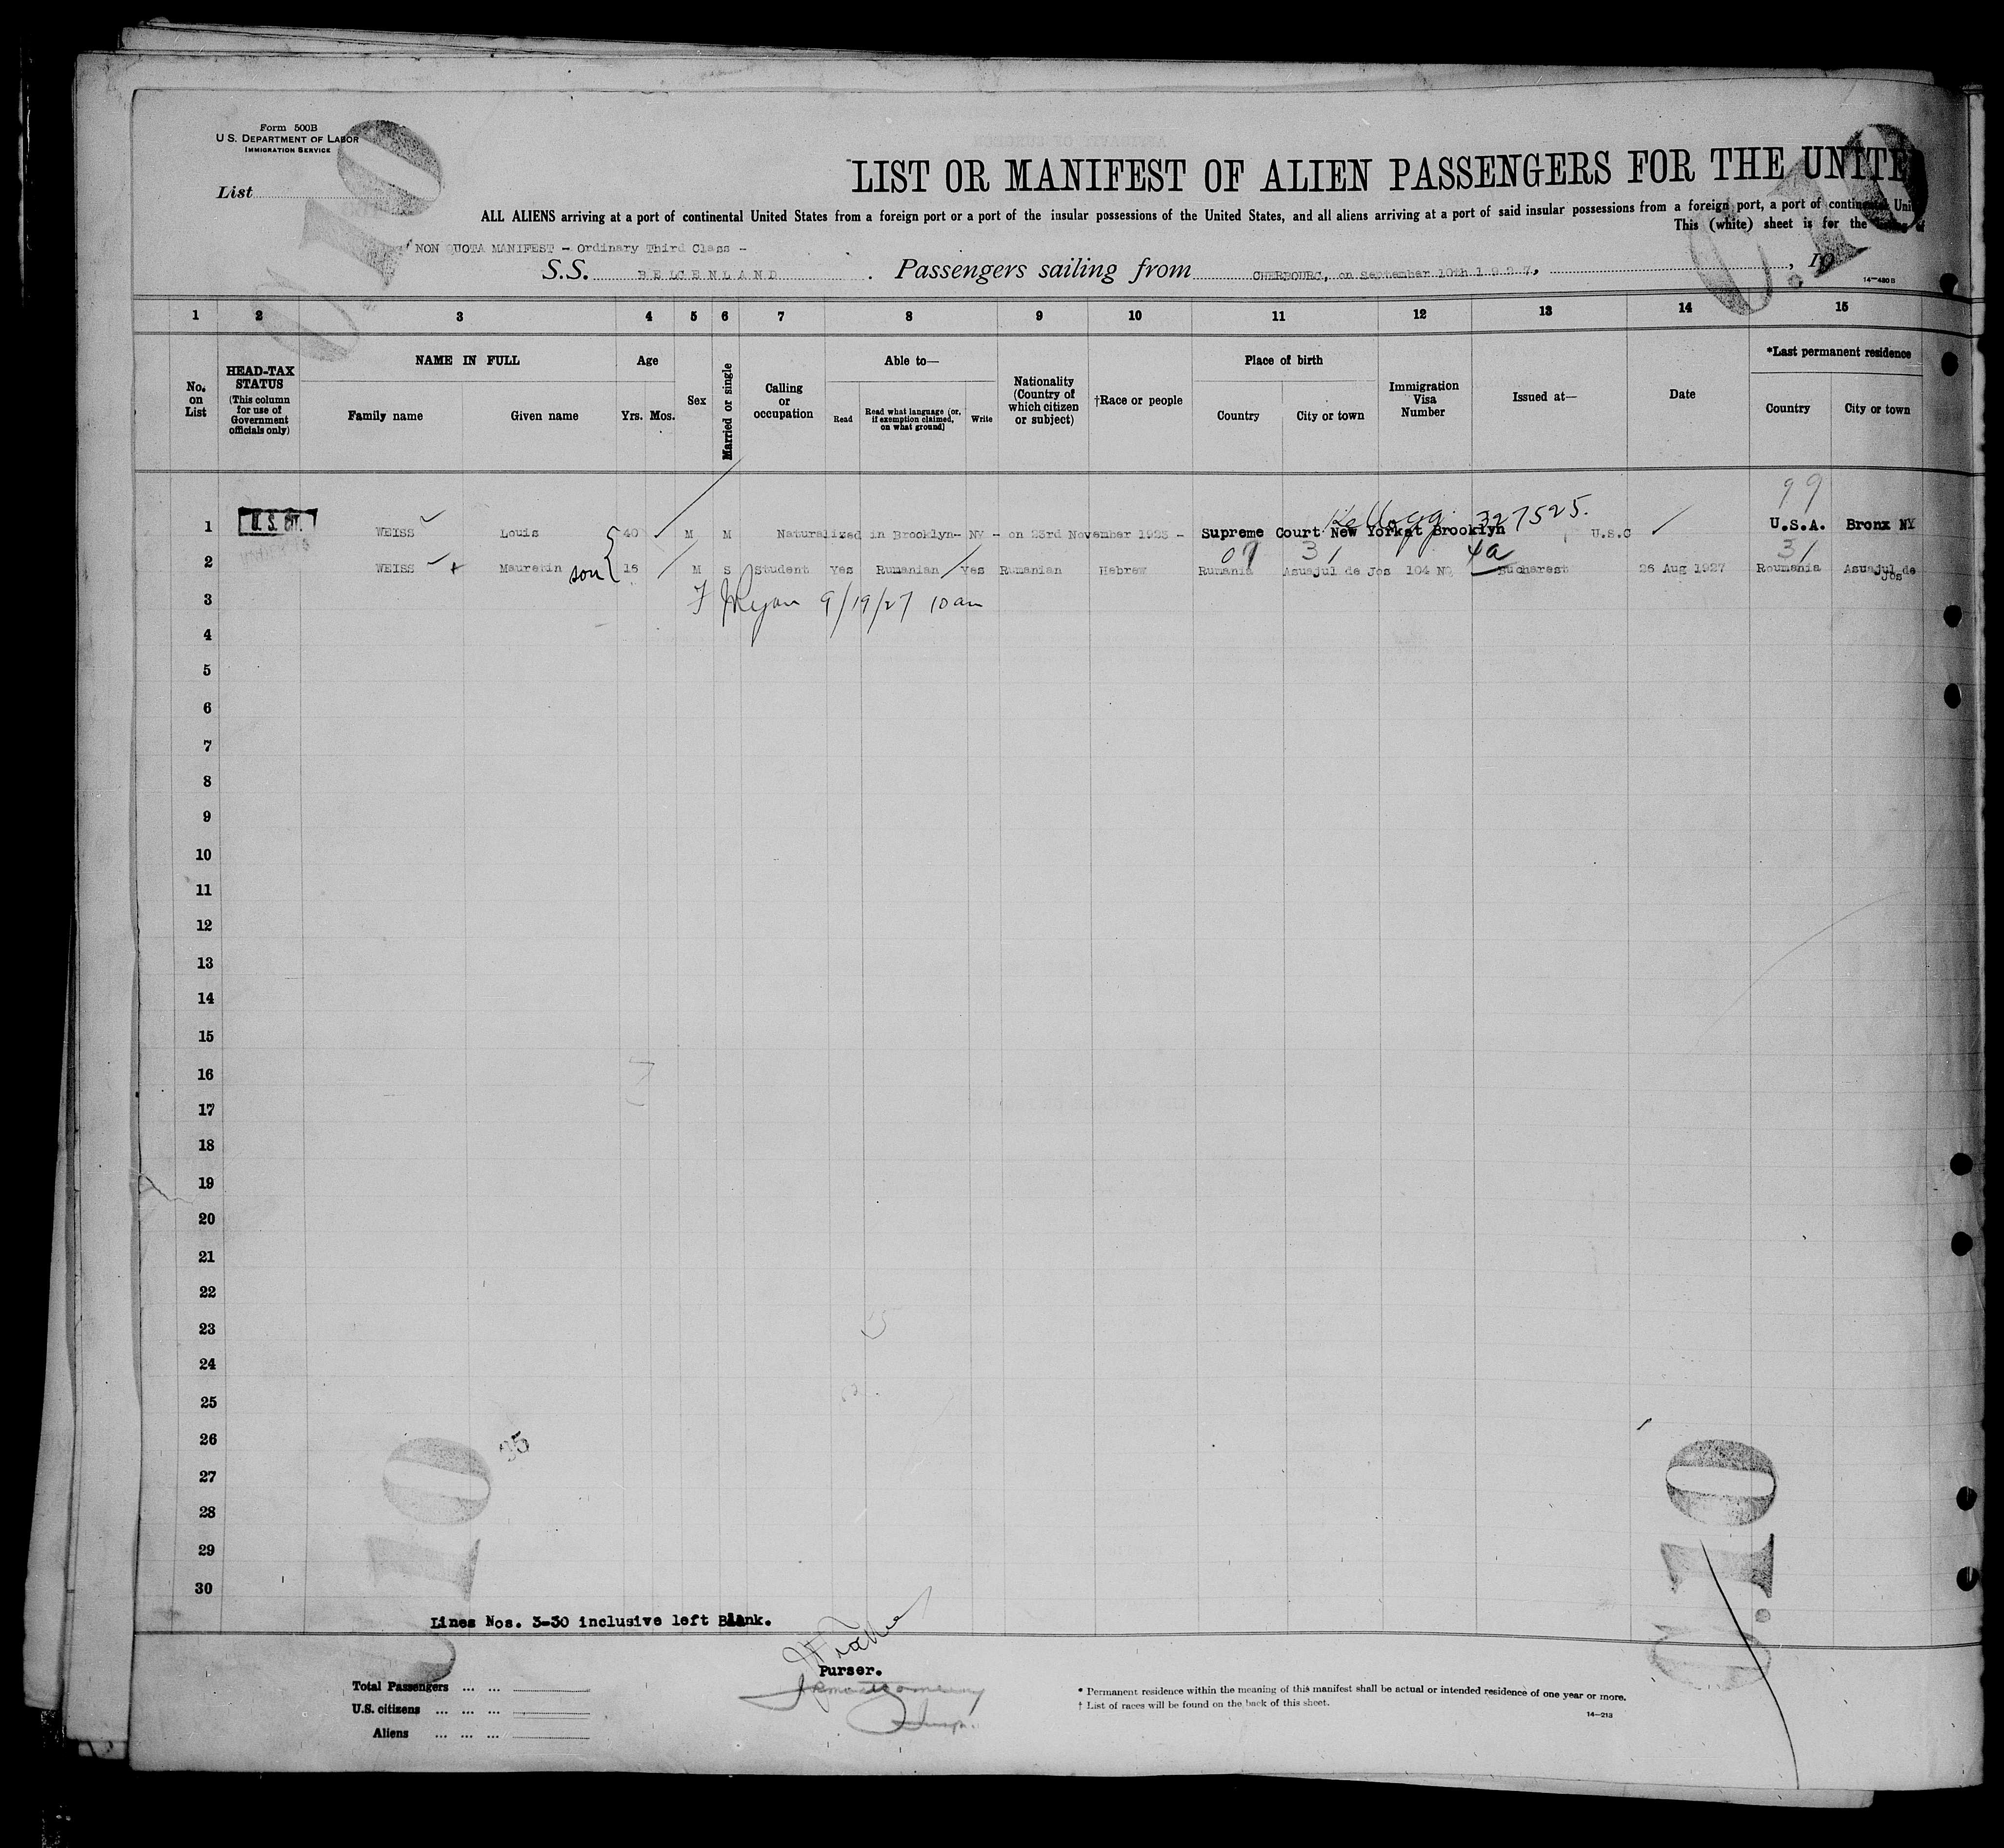 Form 500B
U. S. DEPARTMENT OF LABOR
IMMIGRATION SERVICE
List
LIST OR MANIFEST OF ALIEN PASSENGERS FOR THE UNITE
ALL ALIENS arriving at a port of continental United States from a foreign port or a port of the insular possessions of the United States, and all aliens arriving at a port of said insular possessions from a foreign port, a port of continental Uni
This (white) sheet is for the listing of
NON QUOTA MANIFEST - Ordinary Third Class -
S.S. BELGENLAND. Passengers sailing from CHERBOURG, on September 10th 1927, , 19
14—480 B
1 2 3 4 5 6 7 8 9 10 11 12 13 14 15
No. on List
HEAD-TAX STATUS (This column for use of Government officials only)
NAME IN FULL
Family name Given name
Age
Yrs. Mos.
Sex
Married or single
Calling or occupation
Able to—
Read
Read what language (or, if exemption claimed, on what ground)
Write
Nationality (Country of which citizen or subject)
†Race or people
Place of birth
Country City or town
Immigration Visa Number
Issued at—
Date
*Last permanent residence
Country City or town
99
Kellogg 327525.
1 U.S. CIT. WEISS Louis 40 M M Naturalized in Brooklyn- NY - on 23rd November 1923 - Supreme Court New York at Brooklyn U.S.C U.S.A. Bronx NY
07 31 4a 31
2 WEISS Mauretin son 16 M S Student Yes Rumanian Yes Rumanian Hebrew Rumania Asuajul de Jos 104 NQ Bucharest 26 Aug 1927 Roumania Asuajul de Jos
3 9/19/27 10 am
4
5
6
7
8
9
10
11
12
13
14
15
16
17
18
19
20
21
22
23
24
25
26
27
28
29
30
Lines Nos. 3-30 inclusive left Blank.
Purser.
Total Passengers ... ...
U.S. citizens ... ... ...
Aliens ... ... ...
* Permanent residence within the meaning of this manifest shall be actual or intended residence of one year or more.
† List of races will be found on the back of this sheet.
14—213